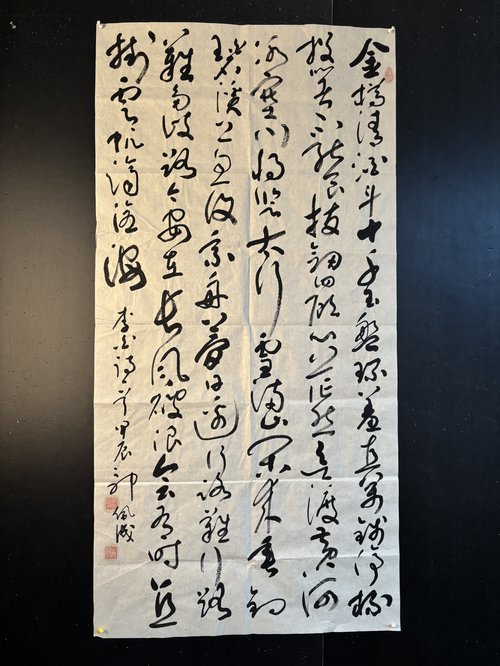 金樽清酒斗十千玉盤珍羞直萬錢停杯
投箸不能食拔劍四顧心茫然欲渡黃河
冰塞川將登太行雪滿山閑來垂釣
碧溪上忽復乘舟夢日邊行路難行路
難多歧路今安在長風破浪會有時直
掛雲帆濟滄海
李白詩一首甲辰